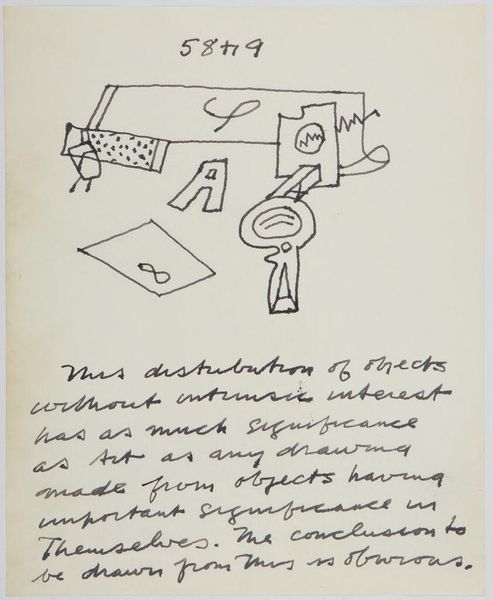 58+9
a
8
This distribution of objects
without intrinsic interest
has as much significance
as Art as any drawing
made from objects having
important significance in
Themselves. The conclusion to
be drawn from this is obvious.